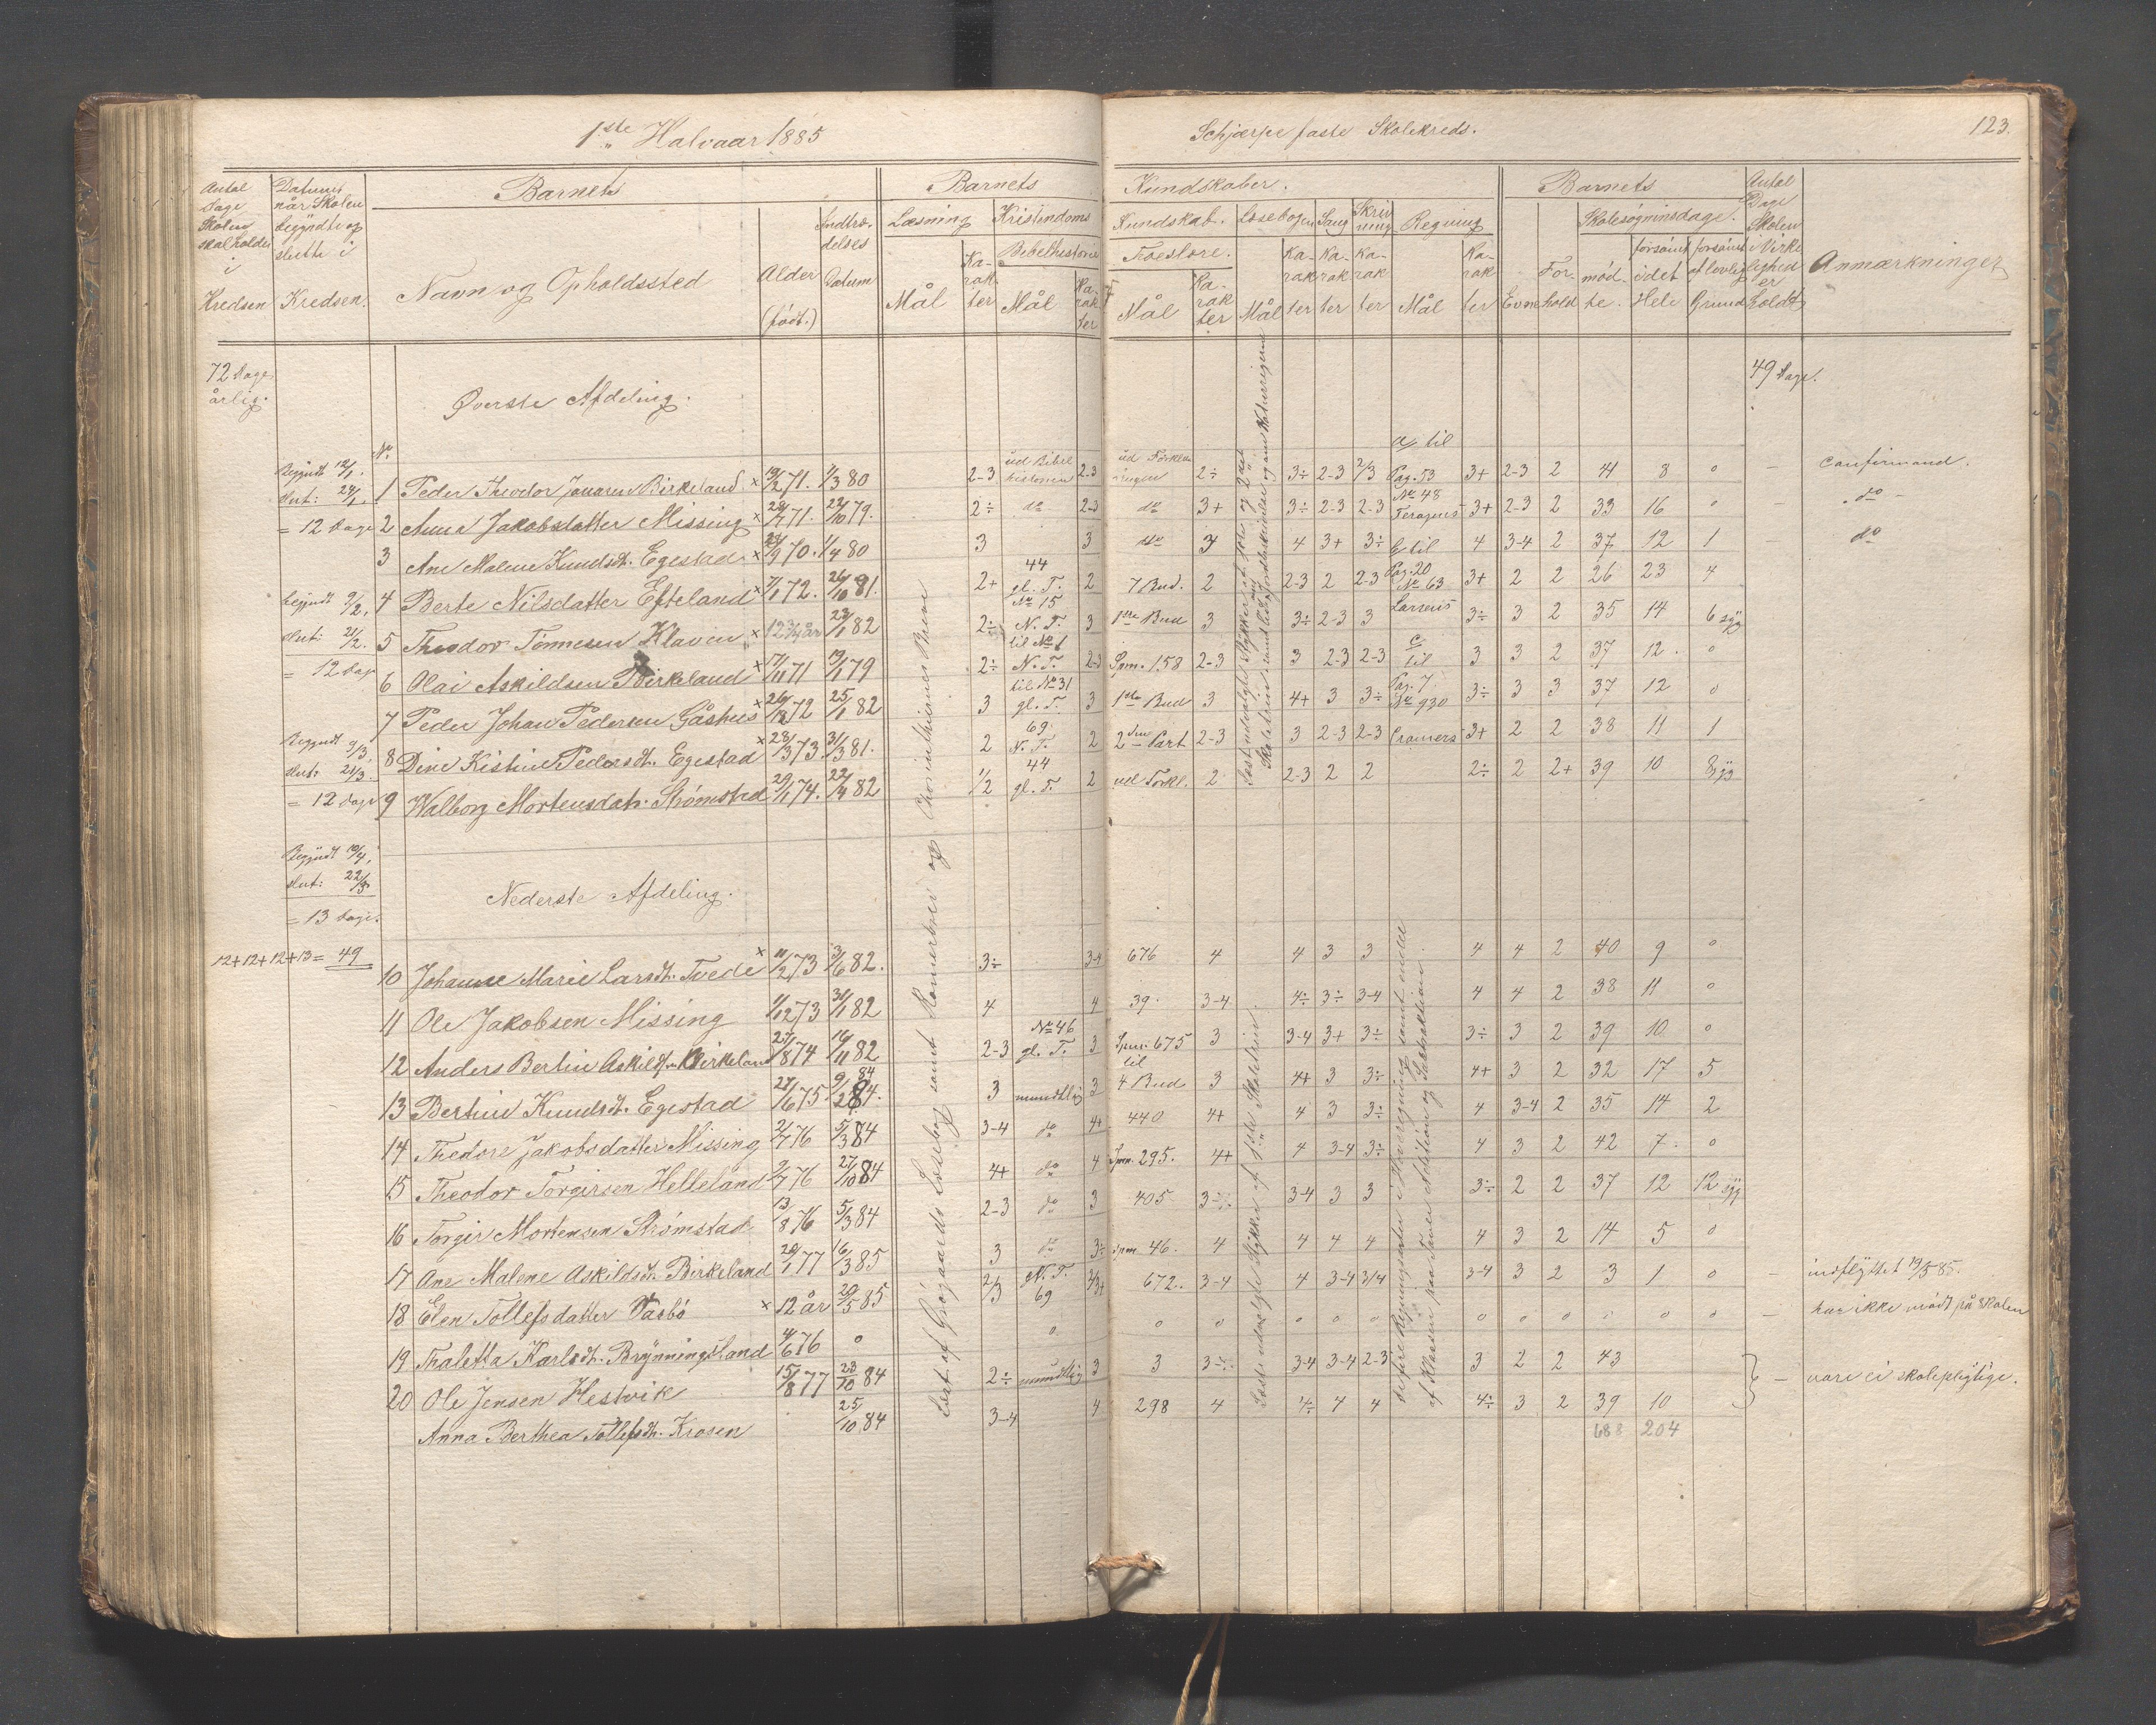 1ste Halvaar 1885
Schjerpe faste Skolekreds.
123.
Antal Dage Skolen skal holdes i Kredsen
Datum når Skolen begyndte og sluttte i Kredsen.
Barnets
Navn og Opholdssted
Alder (født.)
Indtrædelses Datum
Barnets Kundskaber.
Læsning
Mål
Karakter
Kristendoms Kundskab.
Bibelhistorie
Mål
Karakter
Troeslære.
Mål
Karakter
Læsebogen
Mål
Karakter
Sang
Karakter
Skrivning
Karakter
Regning
Mål
Karakter
Barnets
Evne
Forhold
Skolesøgninsdage.
mødte.
forsømt i det Hele
forsømt af lovlig Grund
Antal Dage Skolen i Virkelighed er holdt
Anmærkninger
72 Dage årlig.
49 Dage.
Øverste Afdeling.
No
a, til
Begyndt 12/1.
slut: 24/1.
= 12 Dage
1 Peder Theodor Birkeland × 19/2 71. 1/3 80 2-3 ud Bibelhistorien 2-3 ud Forklaringen 2÷ 3÷ 2-3 2/3 Pag. 53 3+ 2-3 2 41 8 0 – Confirmand.
2 Anna Jakobsdatter Missing × 71. 22/10 79. 2÷ do 2-3 do 3+ 3÷ 2-3 2-3 No 48 3+ 2-3 2 33 16 0 – do –
3 Ane Malene Knudsdt. Egestad × 24/9 70. 1/4 80 3 3 do 3 4 3+ 3÷ b, til 4 3-4 2 37 12 1 – do
begyndt 9/2.
slut: 21/2.
= 12 Dage
4 Berte Nilsdatter Efteland × 7/1 72. 26/10 81. 2+ 44 gl. T. 2 7 Bud. 2 2-3 2 2-3 Pag. 20 No 63 3+ 2 2 26 23 4
5 Theodor Tønnesen Klaven × 12 3/4 år 23/1 82 2÷ No 15 N. T. 3 1ste Bud 3 3÷ 2-3 3 Larsens 3÷ 3 2 35 14 6 syg
6 Olai Askildsen Birkeland × 17/11 71 19/1 79 2÷ til No 1 N. T. 2-3 Spm. 158 2-3 3 2-3 2-3 c, til 3 3 2 37 12. 0
7 Peder Johan Pedersen Gåshus × 26/12 72 25/1 82 3 til No 31 gl. T. 3 1ste Bud 3 4+ 3 3÷ Pag. 7 No 930 3÷ 3 3 37 12 0
Begyndt 9/3.
slut: 21/3.
= 12 Dage
8 Dine Kistine Pedersdt. Egestad × 28/3 73. 31/3 81. 2 69 N. T. 2 2den Part 2-3 3 2-3 2-3 Cramers 3+ 2 2 38 11 1
9 Walborg Mortensdatr. Strømstad 29/1 74. 22/4 82 1/2 44 gl. T. 2 ud Forkl. 2 2-3 2 2 2÷ 2 2+ 39 10 8 syg
Begyndt 10/4.
slut: 22/5
= 13 Dage.
Nederste Afdeling.
12+12+12+13= 49
10 Johanne Marie Larsdt. Tvede × 11/2 73 3/6 82. 3÷ 3-4 676 4 4 3 3 4 4 2 40 9 0
11 Ole Jakobsen Missing 1/12 73 31/1 82 4 4 39. 3-4 4÷ 3÷ 3-4 4 4 2 38 11 0
12 Anders Bertin Askilds. Birkeland 25/8 74 14/11 82 2-3 No 46 gl. T. 3 Spm. 675 3 3-4 3+ 3÷ 3÷ 3 2 39 10 0
13 Bertine Knudsdt. Egestad 24/6 75 9/2 84. 3 mundtlig 3 til 4 Bud 3 4+ 3 3÷ 4+ 3 2 32 17 5
14 Thedore Jakobsdatter Missing 2/7 76 5/3 84 3-4 do 4+ 440 4+ 4 3 3÷ 4 3-4 2 35 14 2
15 Theodor Torgirsen Helleland 9/7 76 27/10 84 4+ do 4 Spm. 295. 4+ 4 3-4 3÷ 4 3 2 42 7. 0
16 Torgir Mortensen Strømstad 13/8 76 5/3 84 2-3 do 3 405 3÷ 3-4 3 3 3÷ 2 2 37 12 12 syg
17 Ane Malene Askildsdt. Birkeland 20/1 77 16/3 85 3 do 3÷ Spm. 46. 4 4 4 4 4 3 2 14 5 0
18 Elen Tollefsdatter Vasbø × 12 år 20/5 85 2/3 N. T. 69 672. 3-4 4 3-4 3/4 3-4 3 2 3 1 0 – indflyttet 19/5 85.
19 Thaletta Karlsdt. Brynningsland 4/6 76 0 0 0 0 0 0 0 0 0 0 0 0 0 – har ikke mødt på Skolen
20 Ole Jensen Hestvik 15/8 77 23/10 84 2÷ mundtlig 3 3 3÷ 3-4 3-4 2-3 3 2 2 43
Anna Berthea Tollefsdt. Krosen 25/10 84 3-4 4 298 4 4÷ 4 4 4÷ 3 2 39 10
– vare ei skolepligtige.
688 204
Læst af Grøgaards Læsebog samt Romerbrev og Chorinthiernes Breve
Læst udvalgte Stykker af 1ste Skoletrin.
de fire Regningsarter i Hoveregning samt endel af Klassen paa Tavler Addition og Subtraktion